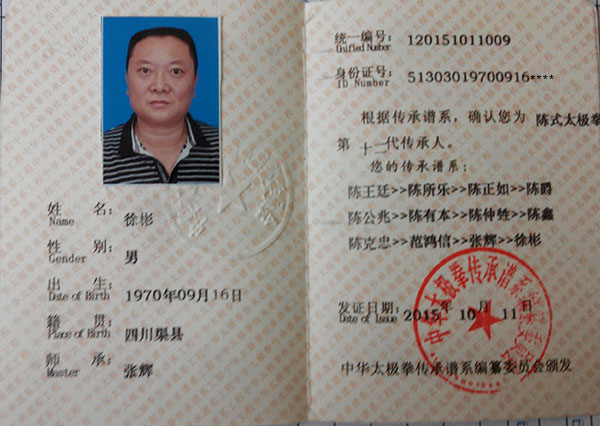 姓 名: 徐彬
Name
性 别: 男
Gender
出 生: 1970年09月16日
Date of Birth
籍 贯: 四川渠县
Place of Birth
师 承: 张辉
Master
统一编号: 120151011009
Unified Number
身份证号: 51303019700916****
ID Number
根据传承谱系,确认您为 陈式太极拳
第 十二 代传承人。
您的传承谱系:
陈王廷>>陈所乐>>陈正如>>陈爵
陈公兆>>陈有本>>陈仲甡>>陈鑫
陈克忠>>范鸿信>>张辉>>徐彬
发证日期: 2015年 10 月 11日
Date of Issue
中华太极拳传承谱系编纂委员会
中华太极拳传承谱系编纂委员会颁发